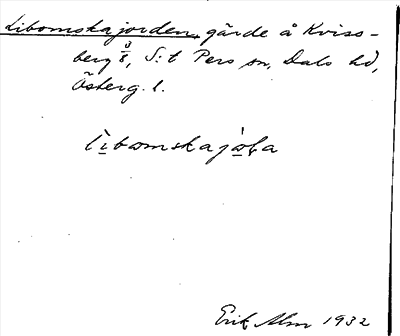 Libomskajorden, gärde å Kviss-
berg 3/8, S:t Pers sn, Dals hd,
Österg. l.
Erik Alm 1932